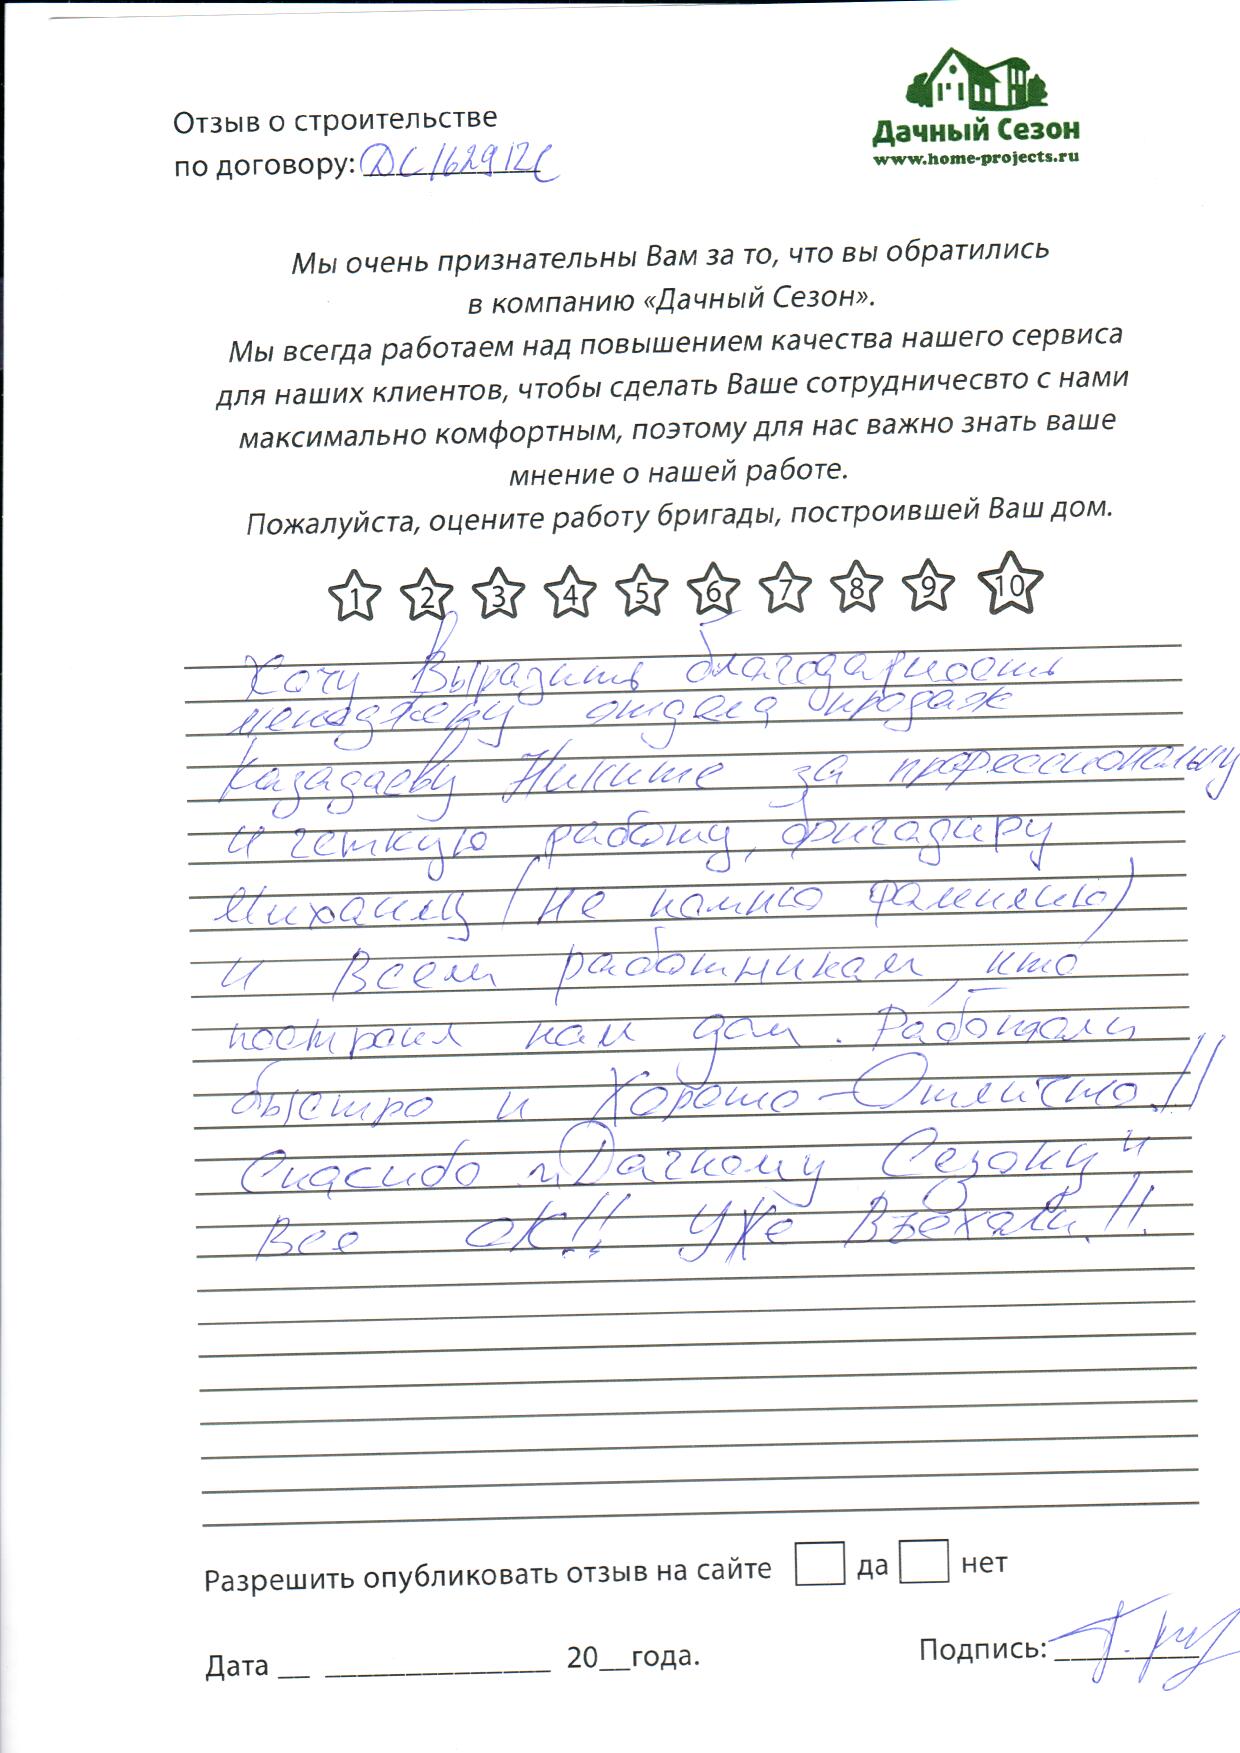 Дачный Сезон
www.home-projects.ru
Отзыв о строительстве
по договору: ДС162912С
Мы очень признательны Вам за то, что вы обратились
в компанию «Дачный Сезон».
Мы всегда работаем над повышением качества нашего сервиса
для наших клиентов, чтобы сделать Ваше сотрудничесвто с нами
максимально комфортным, поэтому для нас важно знать ваше
мнение о нашей работе.
Пожалуйста, оцените работу бригады, построившей Ваш дом.
1 2 3 4 5 6 7 8 9 10
Хочу Выразить благодарность
менеджеру отдела продаж
Казадаеву Никите за профессиональную
и четкую работу, бригадиру
Михаилу (не помню фамилию)
и Всем работникам, кто
построил нам дом. Работали
быстро и Хорошо - Отлично.!!
Спасибо „Дачному Сезону“
Все ОК!! Уже Въехали.!!
Разрешить опубликовать отзыв на сайте да нет
Дата __ ______________ 20__года.
Подпись: